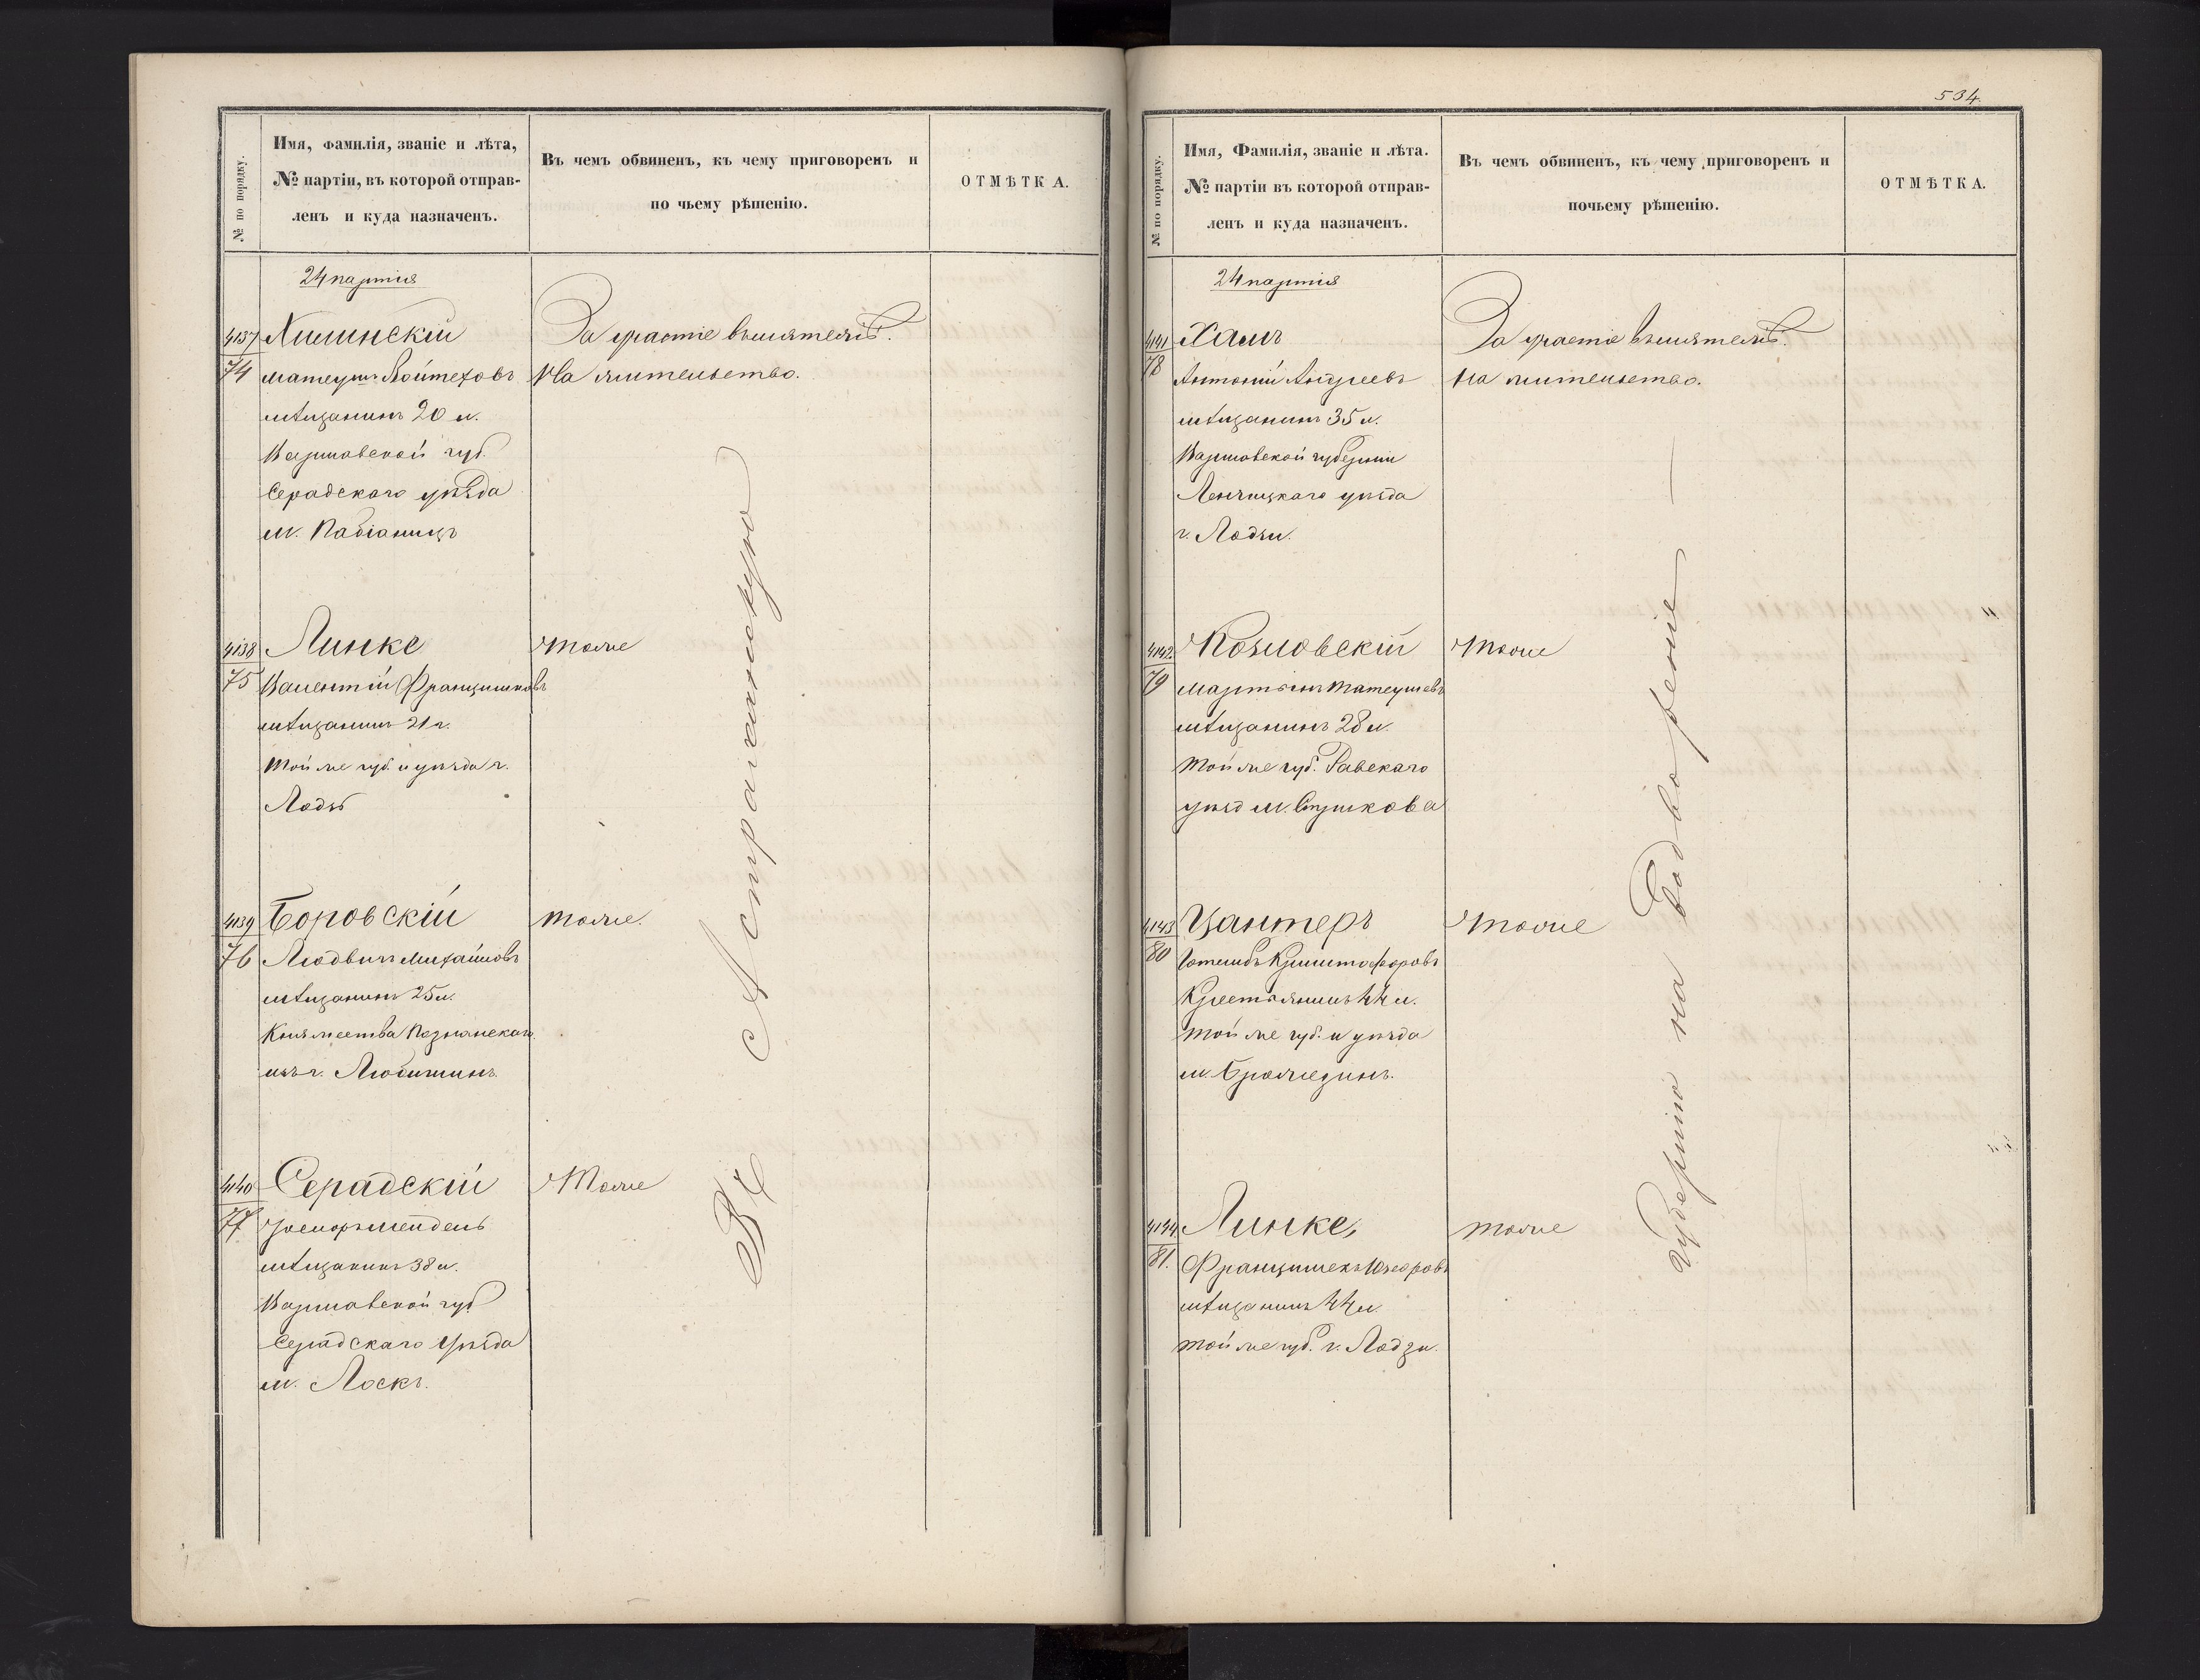 № по порядку.
Имя, фамилія, званіе и лѣта,
№ партіи, въ которой отправ-
ленъ и куда назначенъ.
Въ чемъ обвиненъ, къ чему приговоренъ и
по чьему рѣшенію.
ОТМѢТКА.
24 партія
4137
74
Хилинскій
Матеушъ Войтеховъ
мѣщанинъ 20 л.
Варшавской губ.
Серадскаго уѣзда
м. Пабіаницъ
За участіе въ мятежѣ.
На жительство.
4138
75
Линке
Валентій Францишковъ
мѣщанинъ 21 г.
той же губ. и уѣзда г.
Лодзь
тоже
4139
76
Боровскій
Людвигъ Михайловъ
мѣщанинъ 25 л.
Княжества Познанскаго
изъ г.
тоже.
4140
77
Серадскій
мѣщанинъ 38 л.
Варшавской губ
Серадскаго уѣзда
м. Ласкъ.
Тоже
Въ Астраханскую
534.
№ по порядку.
Имя, Фамилія, званіе и лѣта.
№ партіи въ которой отправ-
ленъ и куда назначенъ.
Въ чемъ обвиненъ, къ чему приговоренъ и
почьему рѣшенію.
ОТМѢТКА.
24 партія
4141
78
Хамъ
Антоній Андреевъ
мѣщанинъ 35 л.
Варшавской губерніи
Ленчицкаго уѣзда
г. Лодзи.
За участіе въ мятежѣ.
на жительство.
4142
79
Козловскій
Мартынъ Матеушевъ
мѣщанинъ 28 л.
той же губ. Равскаго
уѣзд м. Стрикова
Тоже
4143
80
Цантеръ
Готлибъ Криштофоровъ
Крестьянинъ 44 л.
той же губ. и уѣзда
м.
Тоже
4144
81.
Линке,
Францишекъ Юзефовъ
мѣщанинъ 44 л.
той же губ. г. Лодзи.
тоже
Губернію на Водвореніе